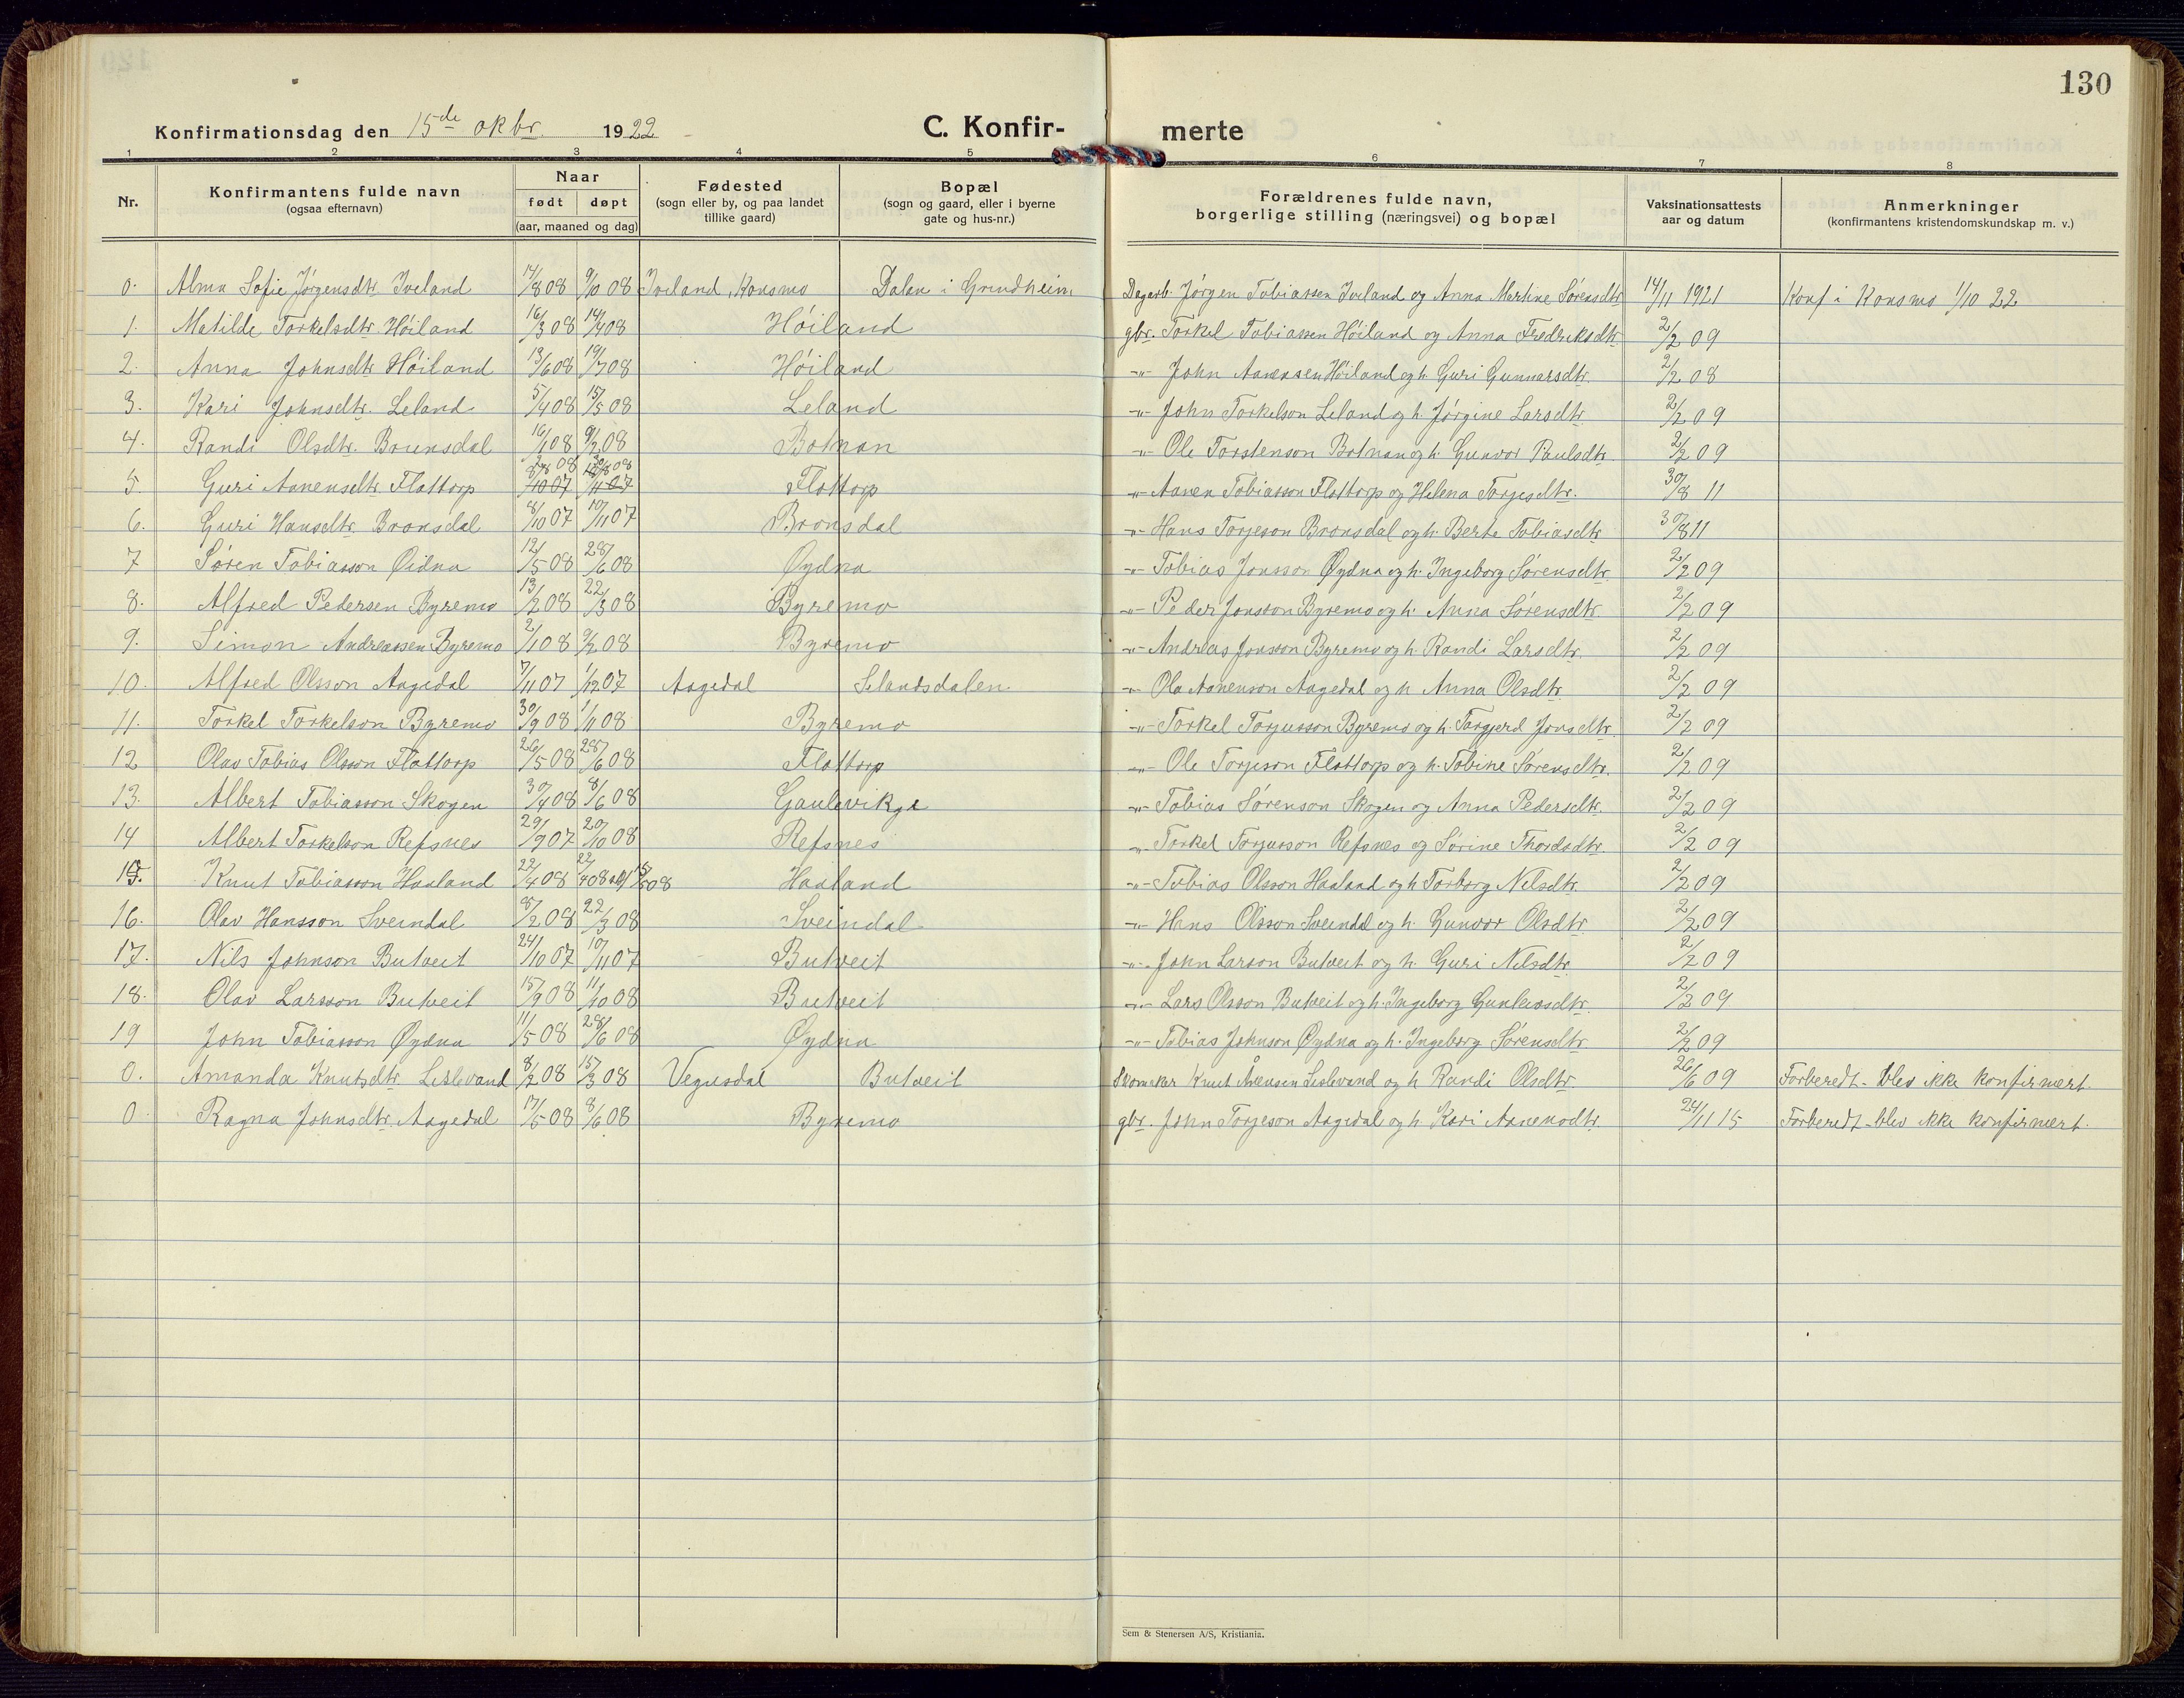 130
Konfirmationsdag den 15de okbr. 1922
C. Konfir- merte
1 2 3 4 5 6 7 8
Nr. | Konfirmantens fulde navn (ogsaa efternavn) | Naar født døpt (aar, maaned og dag) | Fødested (sogn eller by, og paa landet tillike gaard) | Bopæl (sogn og gaard, eller i byerne gate og hus-nr.) | Forældrenes fulde navn, borgerlige stilling (næringsvei) og bopæl | Vaksinationsattests aar og datum | Anmerkninger (konfirmantens kristendomskundskap m. v.)
0. Alma Sofie Jørgensdtr. Iveland 17/8 08 9/10 08 Iveland, Konsmo Dalan i Grindheim Dagarb. Jørgen Tobiassen Iveland og Anna Martine Sørensdtr 14/11 1921 Konf i Konsmo 1/10 22
1. Matilde Torkelsdtr. Høiland 16/3 08 14/4 08 Høiland gbr. Torkel Tobiassen Høiland og Anna Fredriksdtr. 2/2 09
2. Anna Johnsdtr Høiland 13/6 08 19/7 08 Høiland -"- John Aanensen Høiland og h. Guri Gunnarsdtr. 2/2 08
3. Kari Johnsdtr. Leland 5/4 08 15/5 08 Leland -"- John Torkelson Leland og h. Jørgine Larsdtr. 2/2 09
4. Randi Olsdtr. Brunsdal 16/1 08 9/2 08 Botnan -"- Ole Torstenson Botnan og h. Gunvor Paulsdtr. 2/2 09
5. Guri Aanensdtr. Flottorp 08 8/10 07 08 10/11 07 Flottorp -"- Aanen Tobiasson Flottorp og Helena Torjesdtr. 30/8 11
6. Guri Hansdtr. Bronsdal 8/10 07 10/11 07 Bronsdal -"- Hans Torjeson Bronsdal og h. Berte Tobiasdtr. 30/8 11
7 Søren Tobiasson Øidna 12/5 08 28/6 08 Øydna -"- Tobias Jonsson Øydna og h. Ingeborg Sørensdtr. 2/2 09
8. Alfred Pedersen Byremo 13/2 08 22/3 08 Byremo -"- Peder Jonsson Byremo og h. Anna Sørensdtr. 2/2 09
9. Simon Andreassen Byremo 2/1 08 9/2 08 Byremo -"- Andreas Jonsson Byremo og h. Randi Larsdtr. 2/2 09
10. Alfred Olsson Aagedal 7/11 07 1/12 07 Aagedal Selandsdalen -"- Ola Aanenson Aagedal og h. Anna Olsdtr. 2/2 09
11. Torkel Torkelson Byremo 30/9 08 1/11 08 Byremo -"- Torkel Torjusson Byremo og h. Torgjerd Jonsdtr. 2/2 09
12 Olav Tobias Olsson Flottorp 26/5 08 28/6 08 Flottorp -"- Ole Torjeson Flottorp og h. Tobine Sørensdtr. 2/2 09
13. Albert Tobiasson Skogen 30/4 08 8/6 08 Gaulevikje -"- Tobias Sørenson Skogen og Anna Pedersdtr. 2/2 09
14 Albert Torkelson Refsnes 29/9 07 20/10 08 Refsnes -"- Torkel Torjusson Refsnes og Sørine Thordsdtr. 2/2 09
15. Knut Tobiasson Haaland 22/4 08 22/4 08 08 Haaland -"- Tobias Olsson Haaland og h. Torborg Nilsdtr. 2/2 09
16. Olav Hansson Sveindal 8/2 08 22/3 08 Sveindal -"- Hans Olsson Sveindal og h. Gunvor Olsdtr. 2/2 09
17. Nils Johnson Butveit 24/10 07 10/11 07 Butveit -"- John Larson Butveit og h. Guri Nilsdtr. 2/2 09
18. Olav Larsson Butveit 15/9 08 11/10 08 Butveit -"- Lars Olsson Butveit og h. Ingeborg Gunlevsdtr. 2/2 09
19 John Tobiasson Øydna 11/5 08 28/6 08 Øydna -"- Tobias Johnson Øydna og h. Ingeborg Sørensdtr. 2/2 09
0. Amanda Knutsdtr. Leslevand 8/2 08 15/3 08 Vegusdal Butveit Skomaker Knut Leslevand og h. Randi Olsdtr. 26/6 09 Forberedt - blev ikke konfirmert.
0 Ragna Johnsdtr. Aagedal 17/5 08 8/6 08 Byremo gbr. John Torjeson Aagedal og h. Kari Aanensdtr. 24/11 15 Forberedt - blev ikke konfirmert.
Sem & Stenersen A/S, Kristiania.